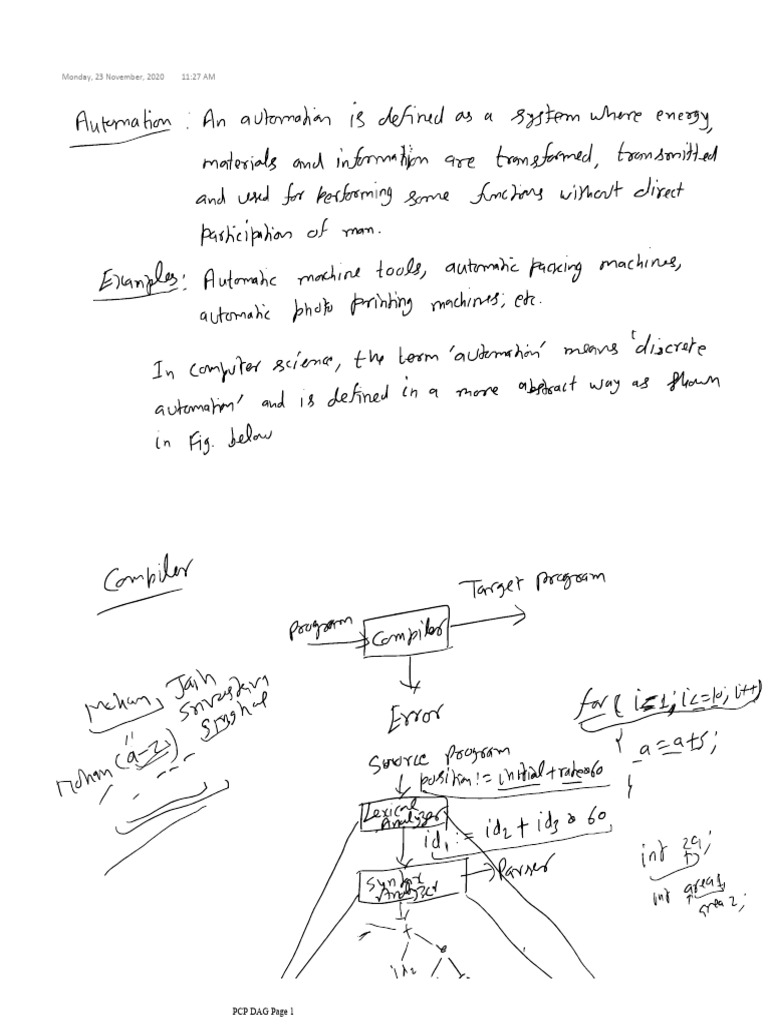 Monday, 23 November, 2020 11:27 AM
Automation : An automation is defined as a system where energy,
materials and information are transformed, transmitted
and used for performing some functions without direct
participation of man.
Examples : Automatic machine tools, automatic packing machines,
automatic photo printing machines, etc.
In computer science, the term 'automation' means 'discrete
automation' and is defined in a more abstract way as shown
in Fig. below
Compiler
Target program
Program
Compiler
Error
Mohan, Jain
Srivastava
Singhal
Mohan (a-z)
for ( i=1; i<=10; i++)
{
a=a+5;
}
Source program
position := initial + rate*60
Lexical
Analyzer
id1 := id2 + id3 * 60
Syntax
Analyzer
Parser
+
*
id2
int 2a;
int area1,
area2;
PCP DAG Page 1